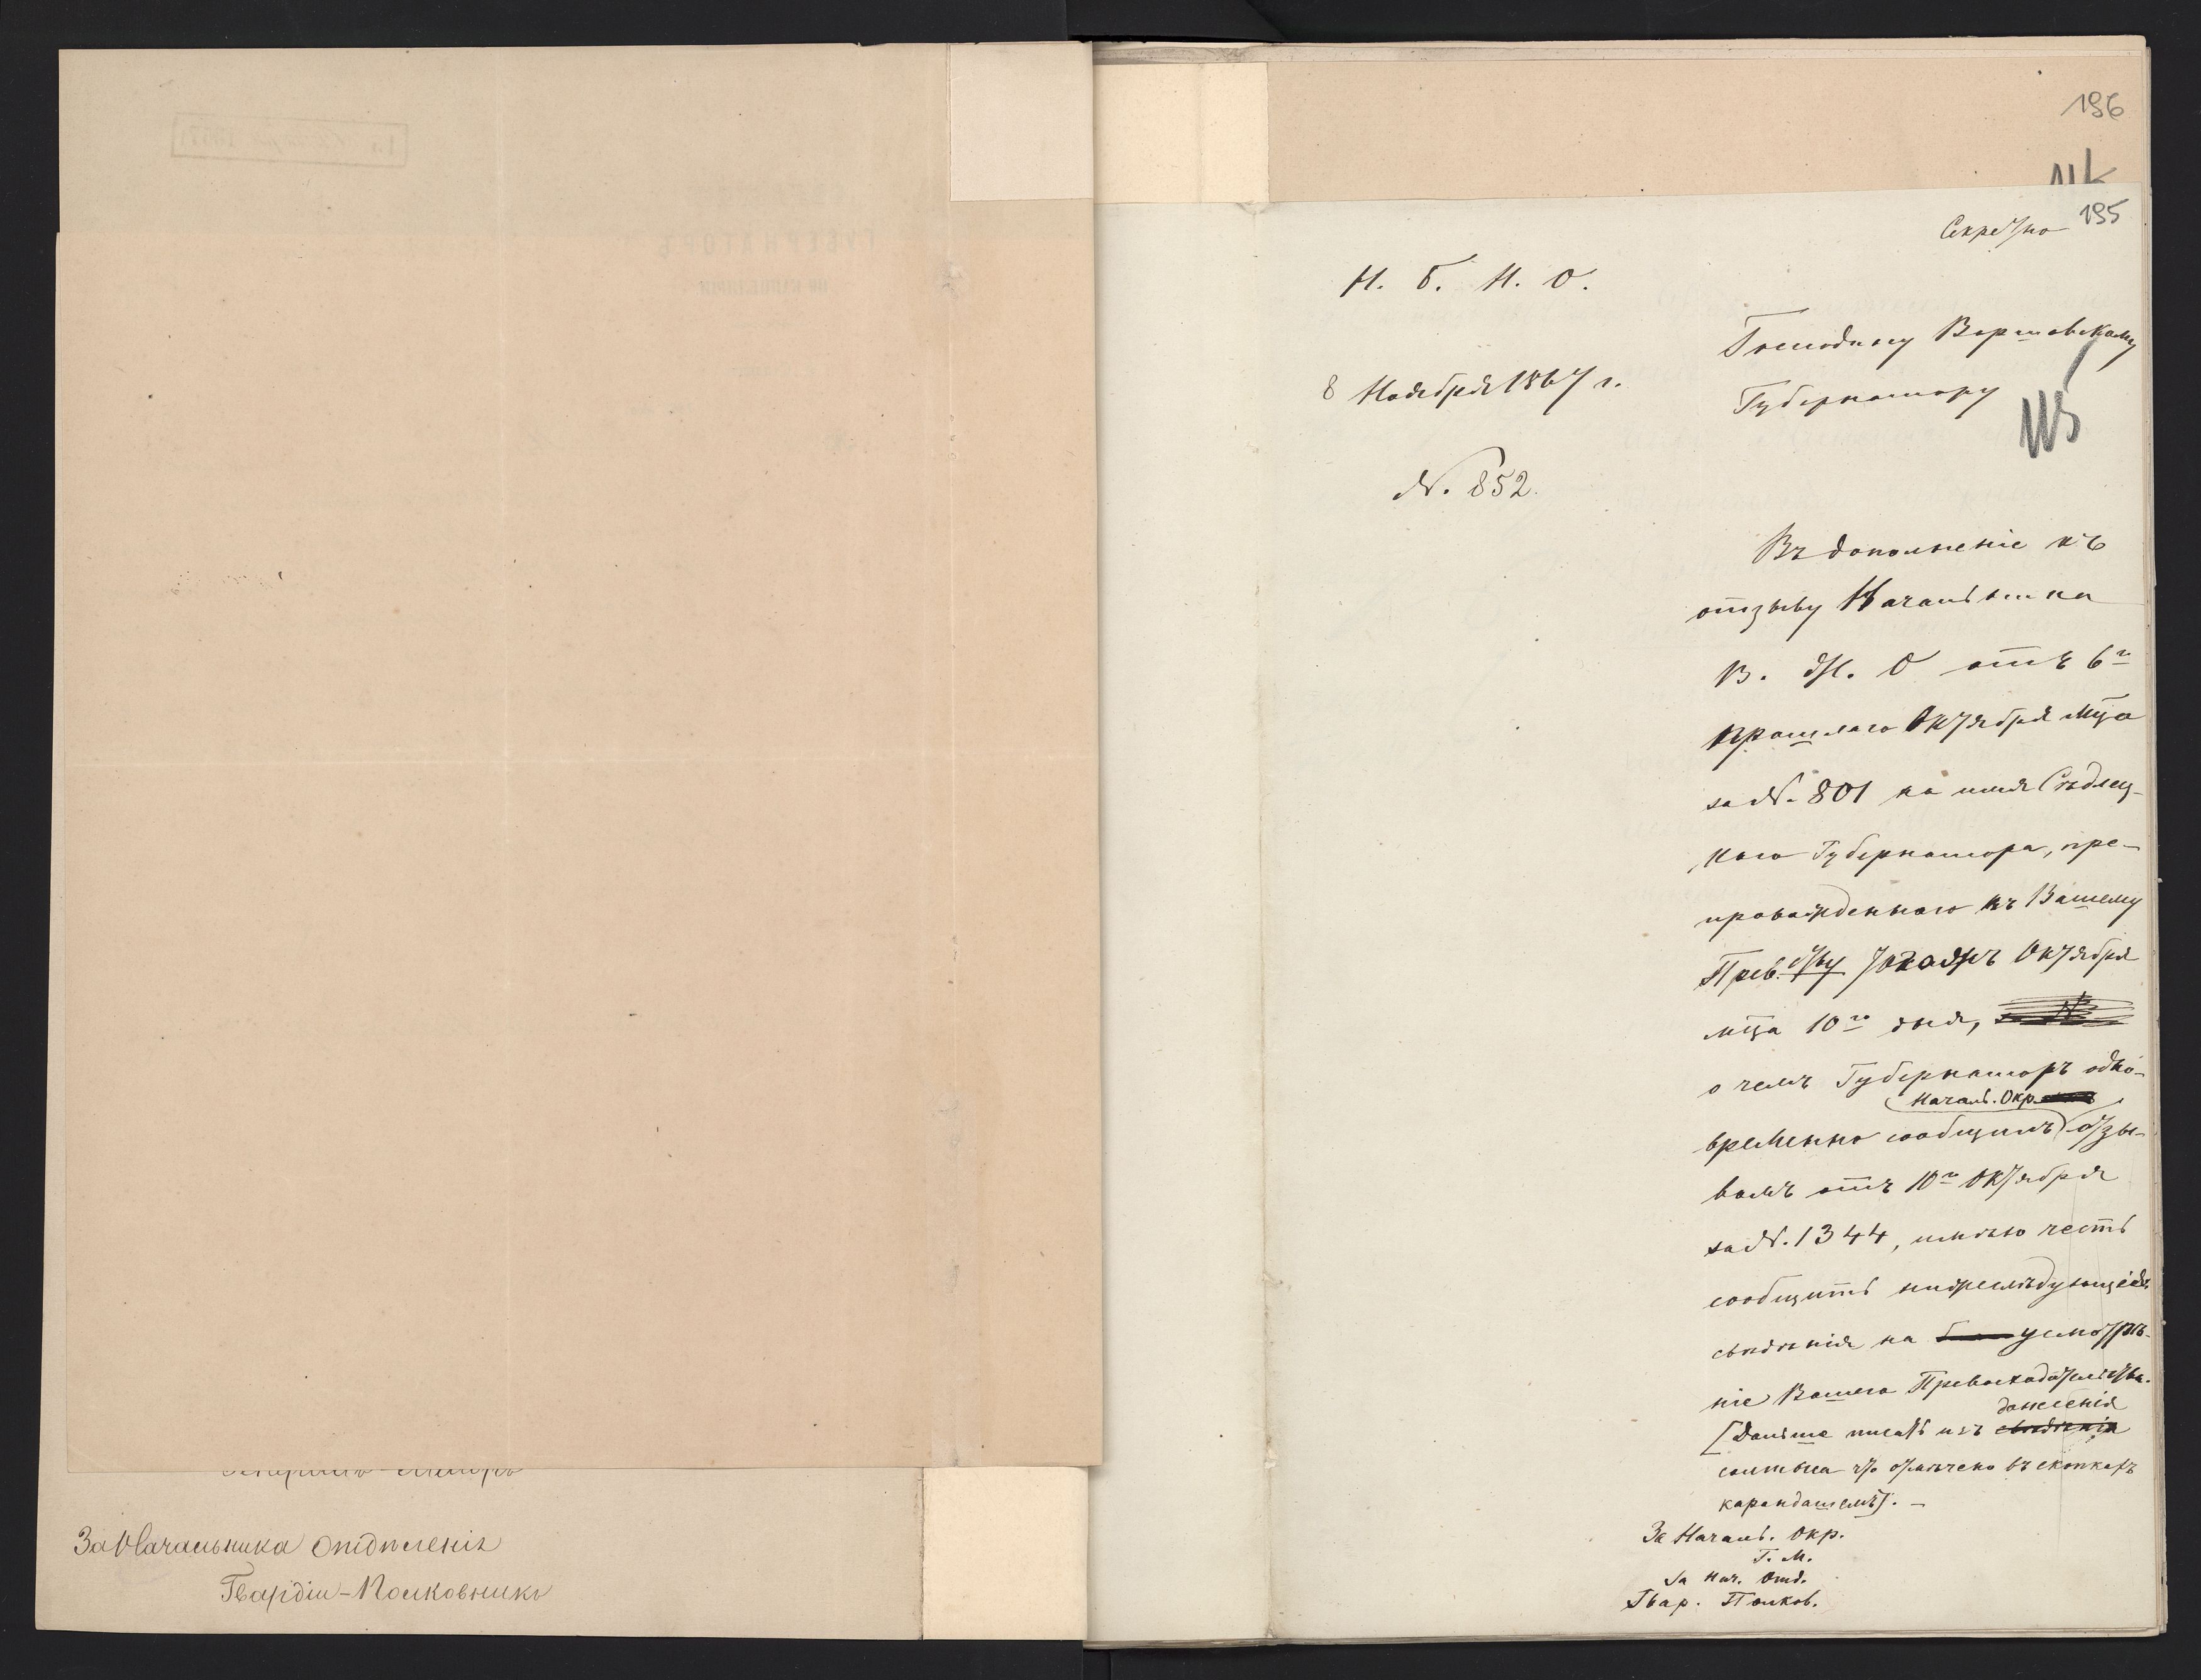 Генералъ-Маіоръ
За Начальника Отдѣленія
Гвардіи-Полковникъ
196
195
Секретно
Н. Б. Н. О.
Господину Варшавскому
8 Ноября 1867 г.
Губернатору
№. 852.
Въ дополненіе къ
отзыву Начальника
В. Ж. О отъ 6го
прошлаго Октября мца
за №. 801 на имя Сѣдлец-
каго Губернатора, пре-
провожденнаго къ Вашему
Прев.ству Октября
мца 10го дня,
о чемъ Губернаторъ одно-
Началь. Окр.
временно сообщилъ отзы-
вомъ отъ 10го Октября
за №. 1344, имѣю честь
сообщить нижеслѣдующія
свѣдѣнія на усмотрѣ-
ніе Вашего Превосходительства.
донесенія
[Дальше писать изъ свѣдѣнія
солтыса что отмѣчено въ скопкахъ
карандашемъ]. -
За Началь. Окр.
Г. М.
За Нач. Отд.
Гвар. Полков.